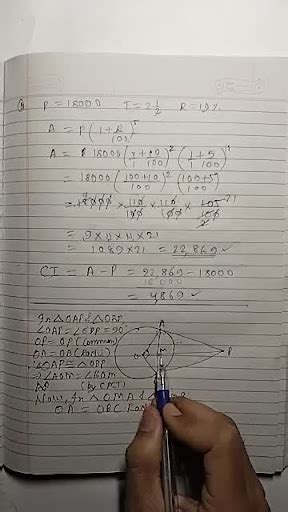 P = 18000 T = 2 1/2 R = 10%
A = P(1 + R/100)^n
A = 18000(1/1 + 10/100)^2 (1/1 + 5/100)^1
= 18000(100+10/100)^2 (100+5/100)
= 18000 × 110/100 × 110/100 × 105/100 21
2
= 9 × 11 × 11 × 21
= 1089 × 21 = 22,869 ✓
CI = A - P = 22,869 - 18000
18000
= 4,869 ✓
In △OAP & △OBP,
∠OAP = ∠OBP = 90°
OP = OP (Common)
OA = OB (Radii)
∴ △OAP ≅ △OBP
⇒ ∠AOM = ∠BOM
(by CPCT)
A
O M P
Now, In △OMA &
OA = OB